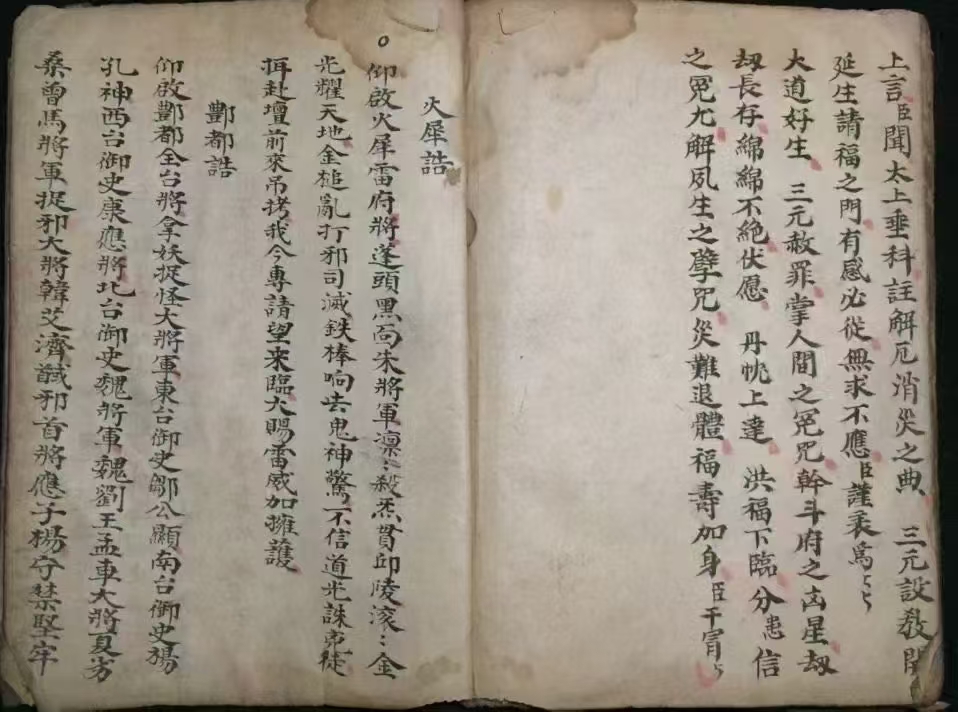 上言臣聞太上垂科註解厄消災之典　三元設教開
延生請福之門有感必從無求不應臣謹表為
大道好生　三元赦罪掌人間之冤咒斡斗府之凶星劫
劫長存綿綿不絕伏愿　丹忱上達　洪福下臨分患信
之冤尤解夙生之孽咒災難退體福壽加身臣干冒
火犀誥
仰啟火犀雷府將蓬頭黑面朱將軍凛〻殺炁貫邱陵滾〻金
光耀天地金槌亂打邪司滅鉄棒响去鬼神驚不信道光誅弟徒
拒赴壇前來吊拷我今專請望來臨大賜雷威加擁護
酆都誥
仰啟酆都全台將拿妖捉怪大將軍東台御史鄒公顯南台御史揚
孔神西台御史康應將北台御史魏將軍魏劉王孟車大將夏劣
桑曾馬將軍捉邪大將韓艾濟馘邪首將應子楊守禁堅牢